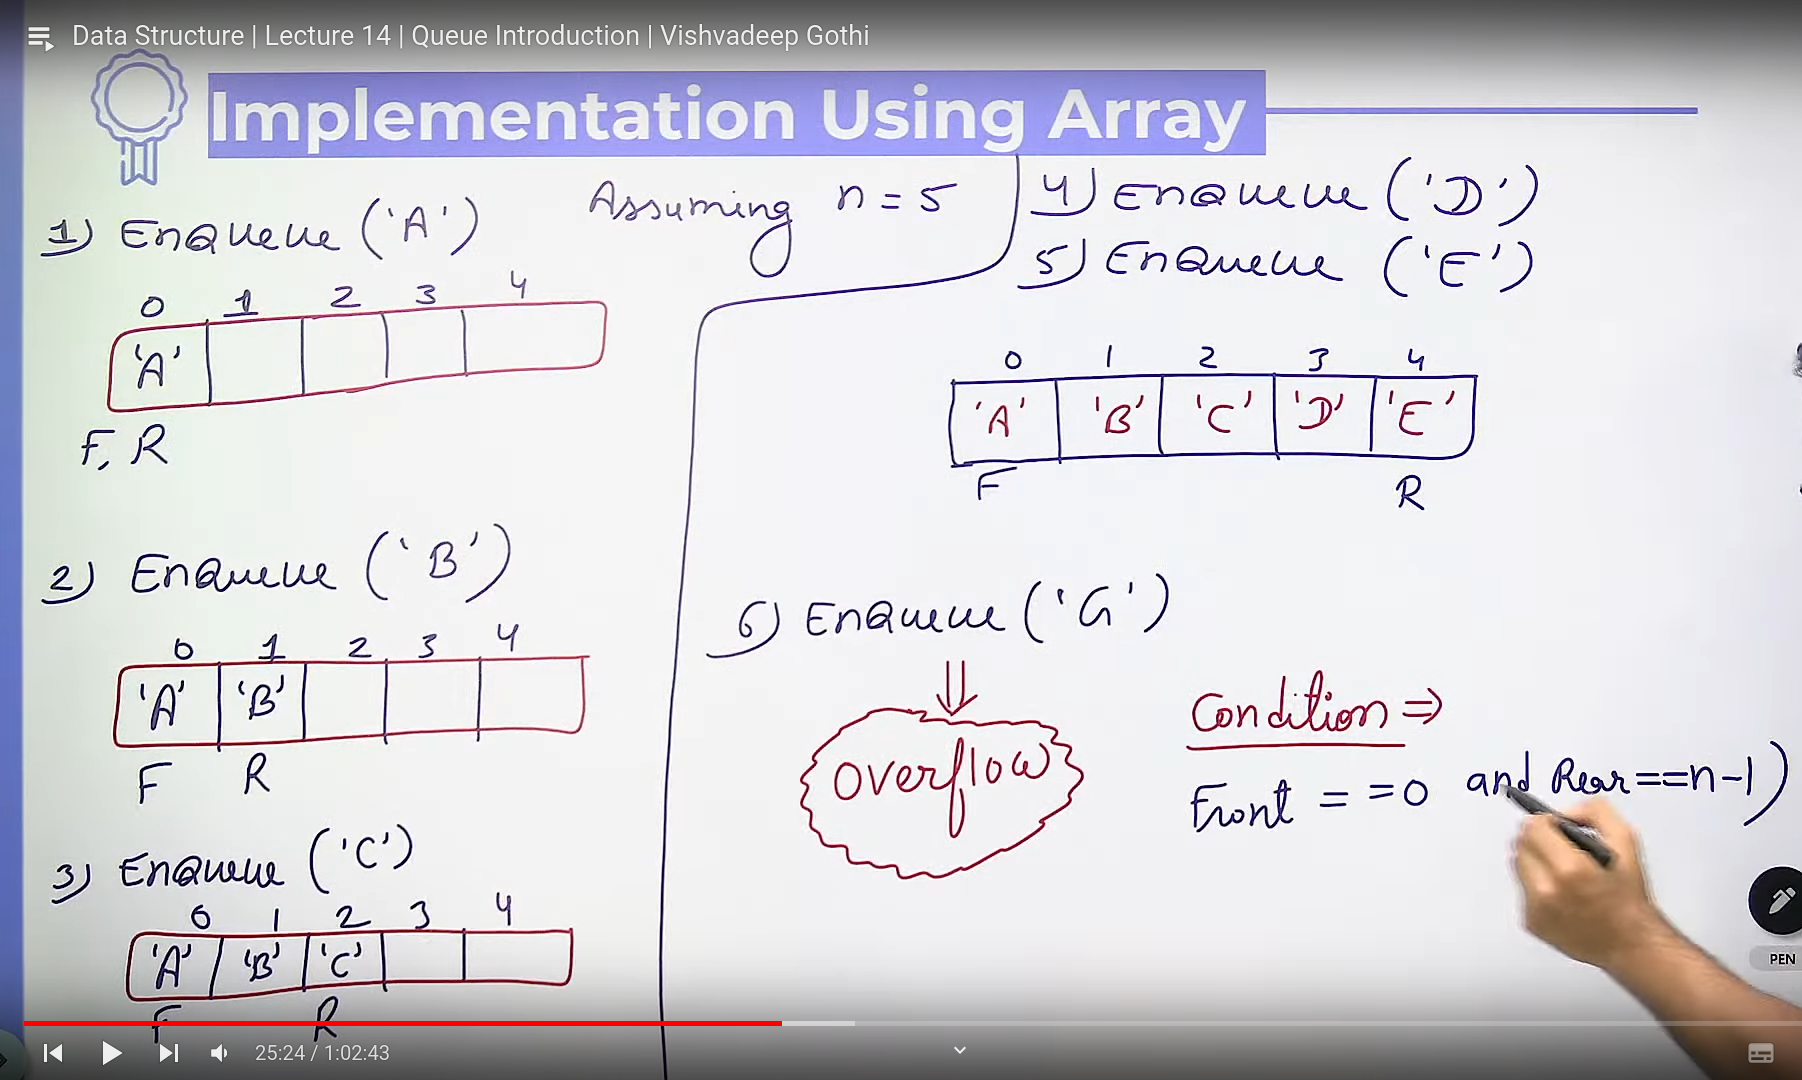 Data Structure | Lecture 14 | Queue Introduction | Vishvadeep Gothi
Implementation Using Array
Assuming n = 5
1) Enqueue ('A')
0 1 2 3 4
'A'
F, R
2) Enqueue ('B')
0 1 2 3 4
'A' 'B'
F R
3) Enqueue ('C')
0 1 2 3 4
'A' 'B' 'C'
F R
4) Enqueue ('D')
5) Enqueue ('E')
0 1 2 3 4
'A' 'B' 'C' 'D' 'E'
F R
6) Enqueue ('G')
⇓
Overflow
Condition ⇒
Front == 0 and Rear == n-1)
PEN
25:24 / 1:02:43